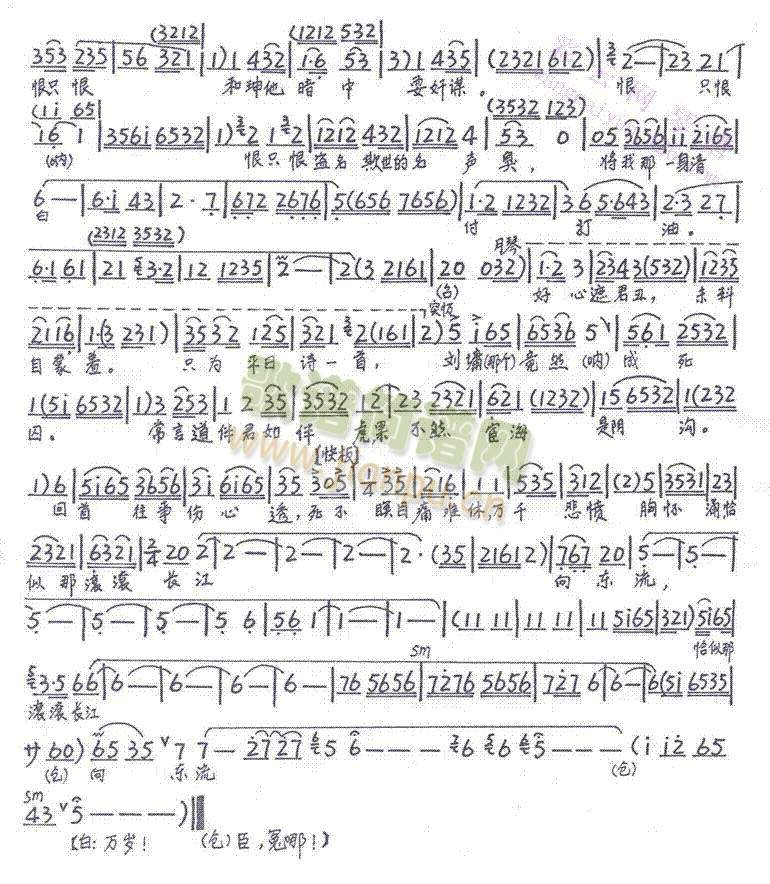 (3212) (1212 532)
353 235 | 56 321 | 1) 1 432 | 1·6 53 | 3) 1 435 | (2321 612) | 2 — | 23 21 |
恨只恨 和珅他暗中 耍奸谋。 恨 只恨
(1i 65) (3532 123)
16 1 | 356i 6532 | 1) 2 1 2 | 1212 432 | 1212 4 | 53 0 | 05 3656 | ii 2i65 |
(呐) 恨只恨盗名欺世的名声臭, 将我那一身清
6 — | 6·i 43 | 2·7 | 672 2676 | 5(656 7656) | 1·2 1232 | 36 5·643 | 2·3 27 |
白 付 訂 油。
(2312 3532) 月琴
6·1 61 | 21 3·2 | 12 1235 | 2 — | 2(3 2161 | 20 032) | 1·2 3 | 2343(532) | 1235 |
好心遮君丑, 未料
2116 | 1·(3 231) | 3532 125 | 321 2(161 | 2) 5 i65 | 6536 5 | 561 2532 |
自蒙羞。 只为平日诗一首, 刘墉(那个)竟然(呐)成死
1(5i 6532 | 1) 3 253 | 1 2 35 | 3532 12 | 23 2321 | 621 (1232) | 15 6532 | 1(232
囚。 常言道伴君如伴虎果不然宦海是阴沟。
[快板]
1) 6 | 5i65 3656 | 3i 6i65 | 35 305 | 35 | 216 | 11 | 535 | 312 | (2) 5 | 3531 | 23 |
回首往事伤心透, 死不瞑目痛难休,万千悲愤胸怀涌恰
2321 | 6321 | 2/4 20 2 | 2 — | 2 — | 2 — | 2· (35 | 21612) | 767 20 | 5 — | 5 — |
似那滚滚长江 向东流,
5 — | 5 — | 5 — | 5 6 | 56 1 | 1 — | 1 — | (11 11 | 11 11 | 11 5i65 | 321) 5i65 |
恰似那
sm
3·5 66 | 6 — | 6 — | 6 — | 6 — | 76 5656 | 7276 5656 | 727 6 | 6 — | 6(5i 6535 |
滚滚长江
サ 60) 65 35 ∨ 7 7 — 2727 5 6 — — — 6 6 5 — — — (i ii2 65
(仓) 向 东流 (仓)
sm
43 ∨ 5 — — — )‖
【白:万岁! (仓)臣,冤哪!】